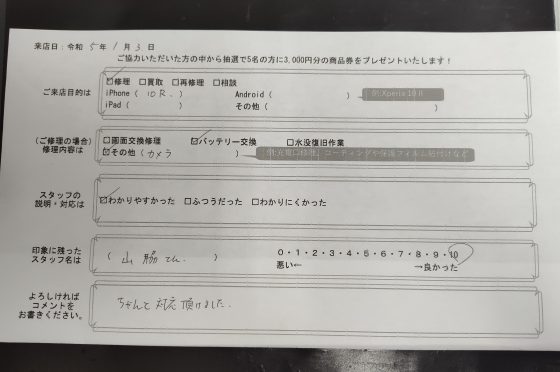 来店日：令和 5年 1月 3日
ご協力いただいた方の中から抽選で5名の方に3,000円分の商品券をプレゼントいたします！
ご来店目的は
☑修理 □買取 □再修理 □相談
iPhone ( 10R. ) Android ( ) 例:Xperia 10Ⅱ
iPad ( ) その他 ( )
(ご修理の場合)
修理内容は
□画面交換修理 ☑バッテリー交換 □水没復旧作業
☑その他 (カメラ )
スタッフの
説明・対応は
☑わかりやすかった □ふつうだった □わかりにくかった
印象に残った
スタッフ名は
( 山脇さん. )
0・1・2・3・4・5・6・7・8・9・10
悪い← →良かった
よろしければ
コメントを
お書きください。
ちゃんと対応頂けました.